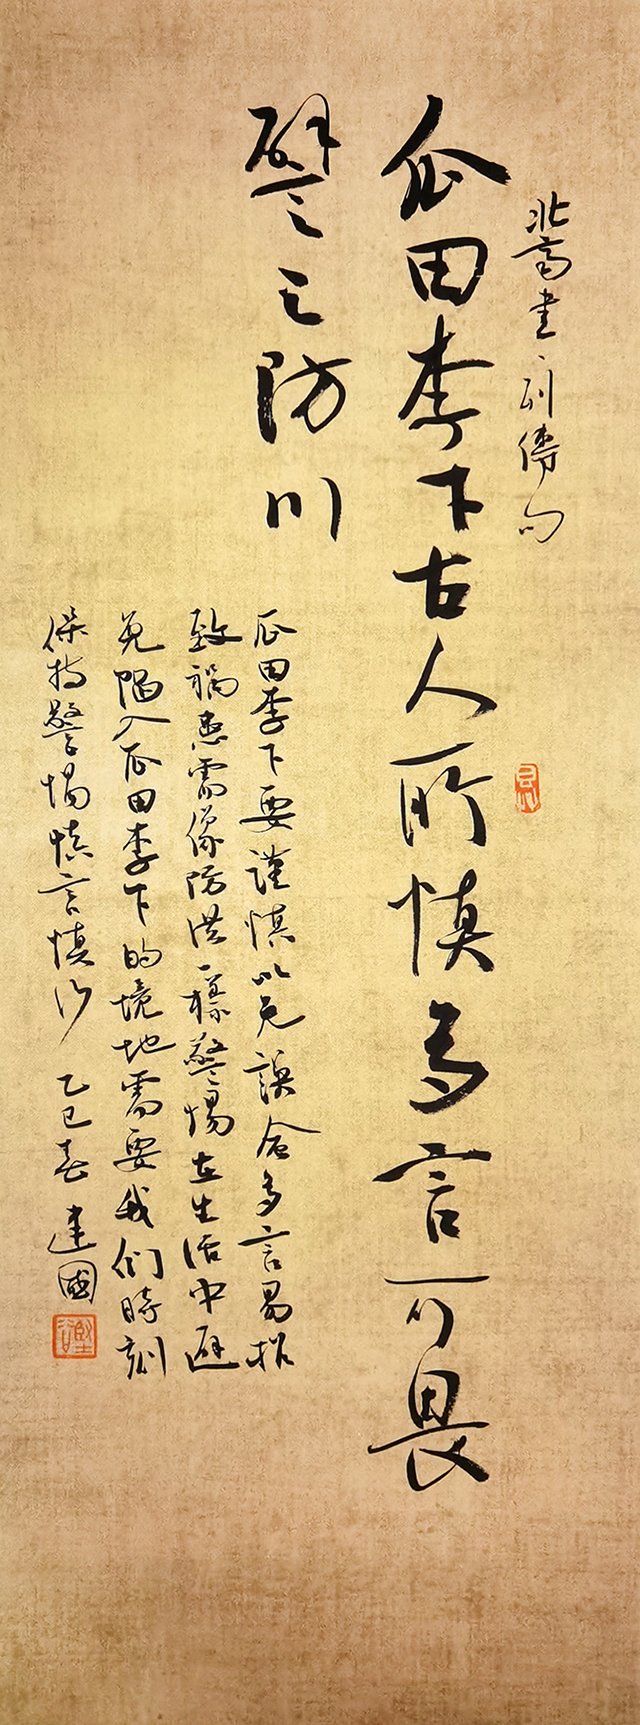 北齊書、列傳句
瓜田李下古人所慎多言可畏
譬之防川
瓜田李下要謹慎以免誤會多言易招
致禍患需像防洪一樣警惕在生活中避
免陷入瓜田李下的境地需要我们時刻
保持警惕慎言慎行 乙巳春 建國